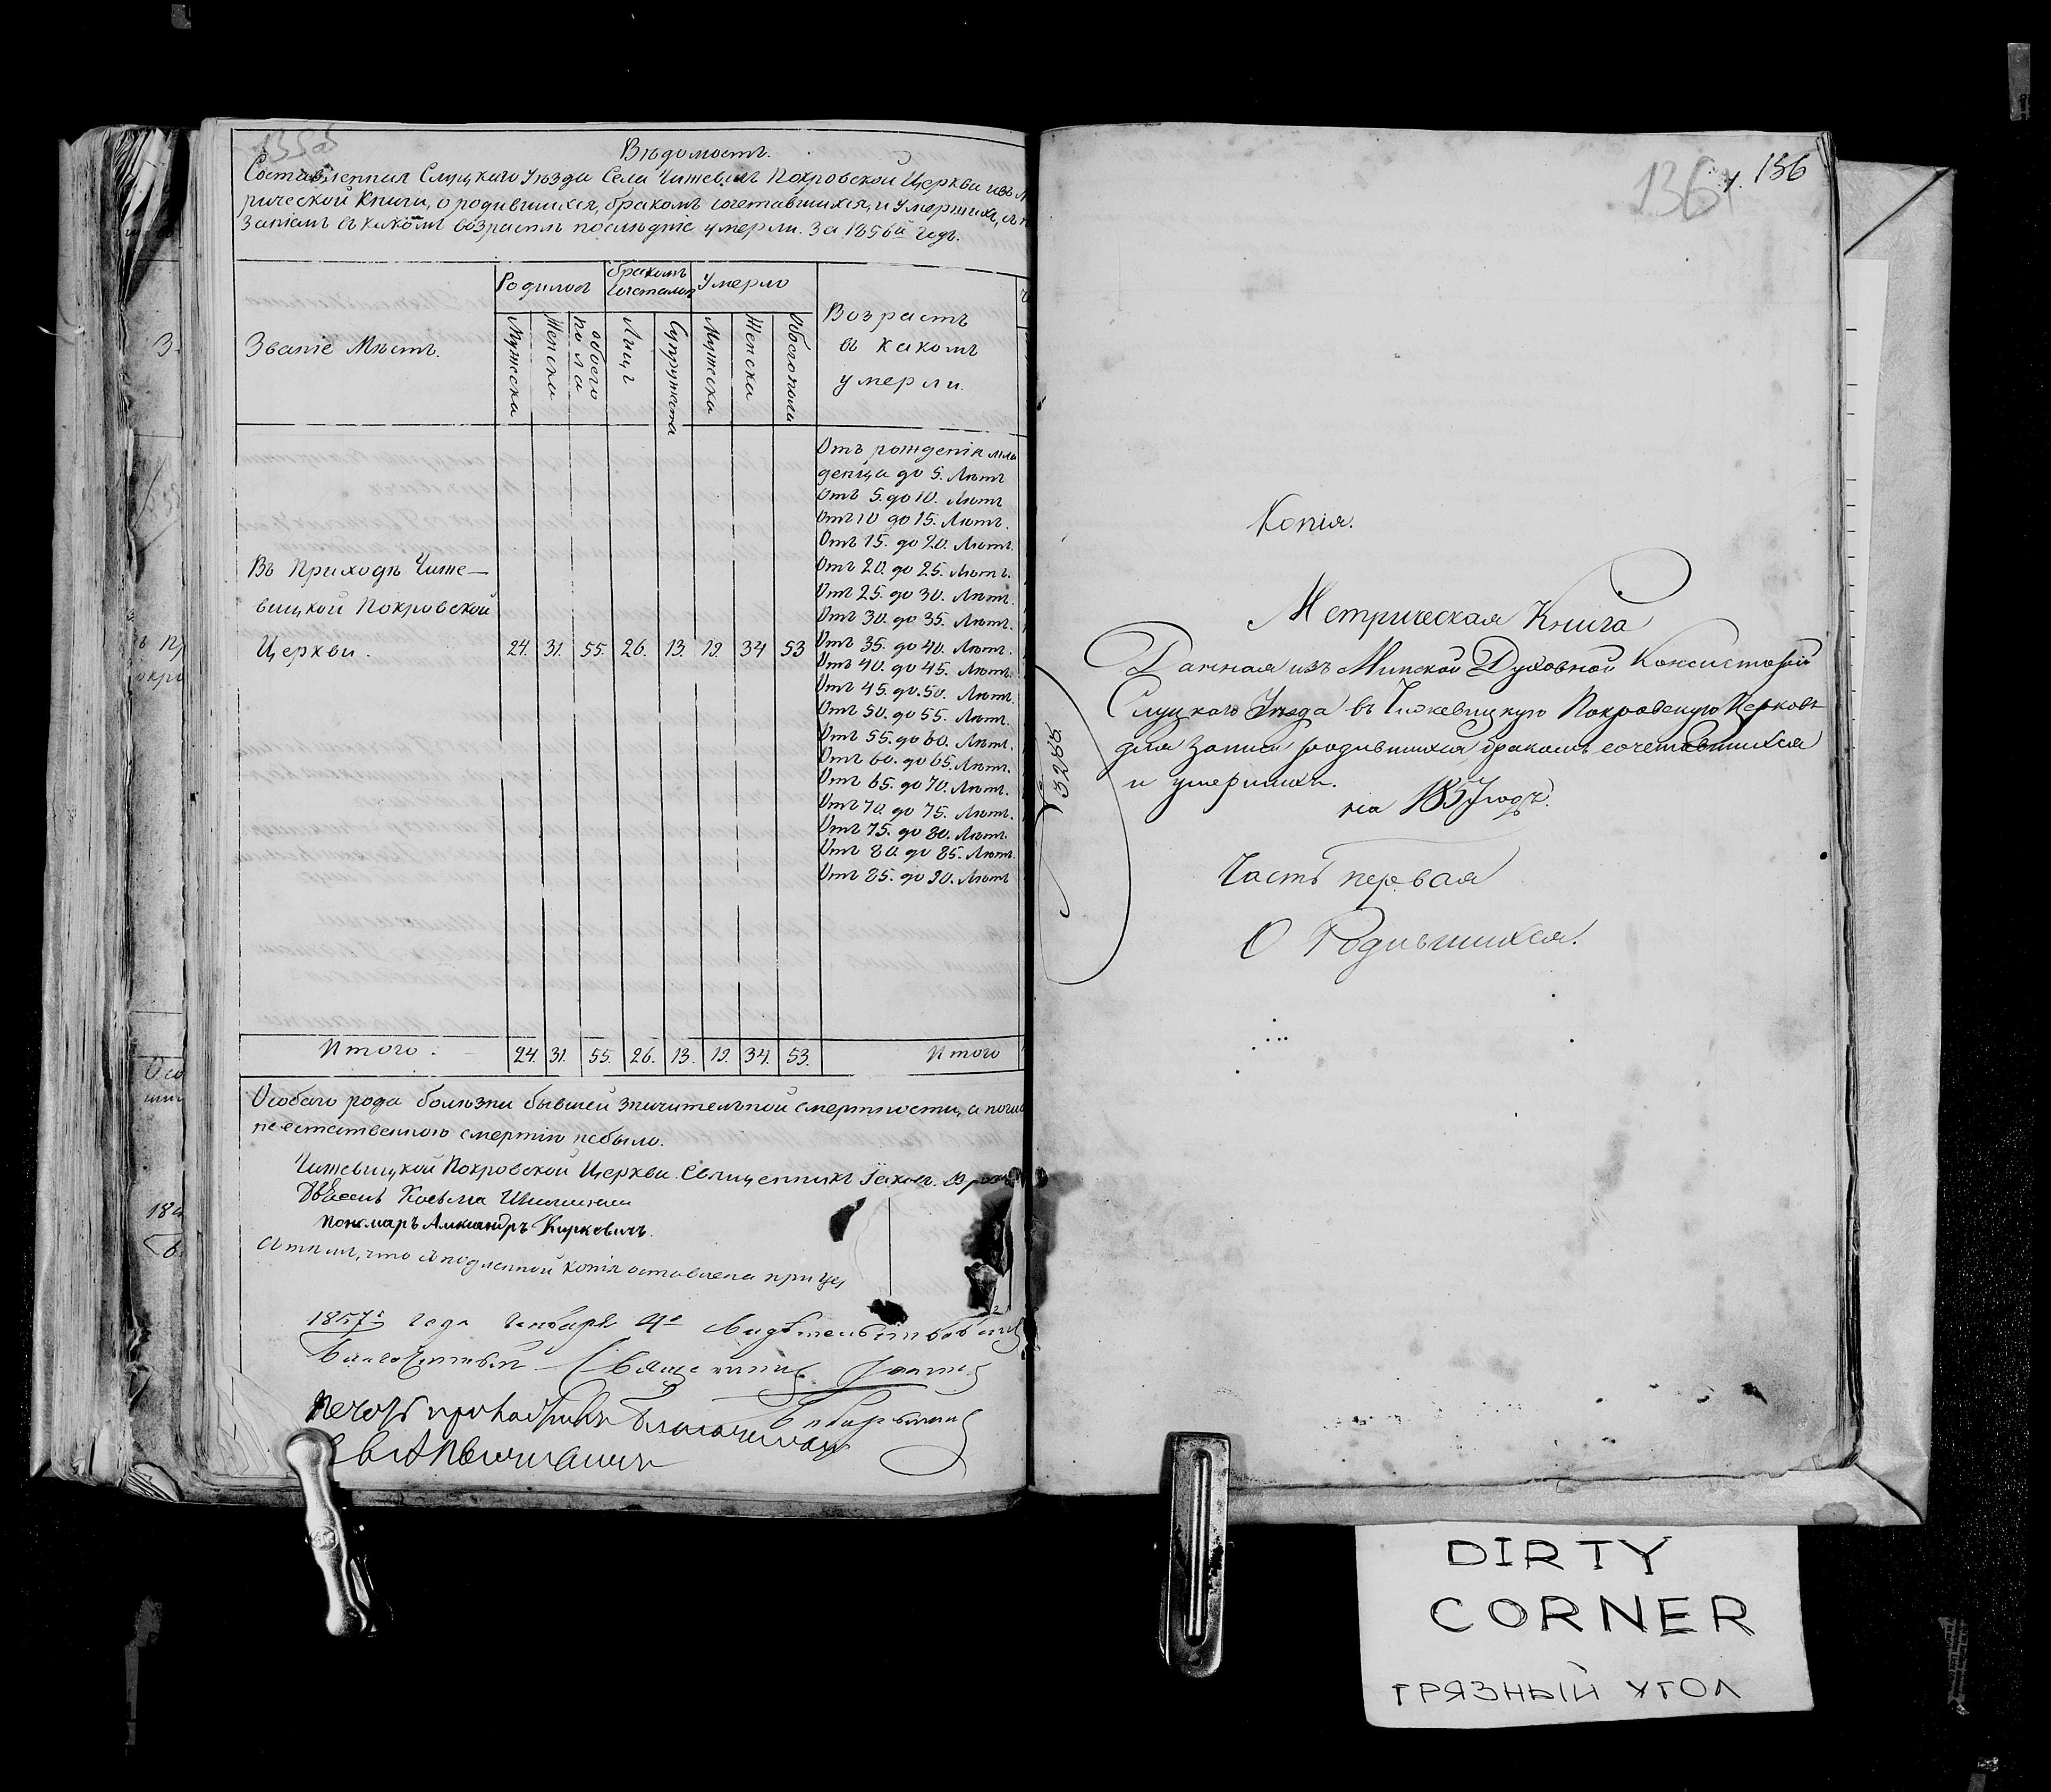 Вѣдомость.
Составленная Слуцкаго Уѣзда Села Чижевичъ Покровской Церкви изъ
рической Книги, о родившихся, бракомъ сочетавшихся, и умершихъ,
заніемъ въ какомъ возрастѣ послѣдніе умерли. За 1856й годъ.
Званіе Мѣстъ.
Родилось
бракомъ сочеталось
Умерло
Возрастъ
въ какомъ
умерли.
Мужеска
Женска
обоего пола
Лицъ
Супружества
Мужеска
Женска
Обоего пола
Въ Приходѣ Чиже—
вицкой Покровской
Церкви. 24. 31. 55. 26. 13. 19. 34 53
Отъ рожденія мла
денца до 5. Лѣтъ
Отъ 5. до 10. Лѣтъ
Отъ 10 до 15. Лѣтъ.
Отъ 15. до 20. Лѣтъ.
Отъ 20. до 25. Лѣтъ.
Отъ 25. до 30. Лѣтъ.
Отъ 30. до 35. Лѣтъ.
Отъ 35. до 40. Лѣтъ.
Отъ 40. до 45. Лѣтъ.
Отъ 45. до 50. Лѣтъ.
Отъ 50. до 55. Лѣтъ.
Отъ 55. до 60. Лѣтъ.
Отъ 60. до 65. Лѣтъ.
Отъ 65. до 70. Лѣтъ.
Отъ 70. до 75. Лѣтъ.
Отъ 75. до 80. Лѣтъ.
Отъ 80. до 85. Лѣтъ.
Отъ 85. до 90. Лѣтъ
Итого. 24. 31. 55. 26. 13. 19. 34. 53. Итого
Особаго рода болѣзни бывшей значительной смертности, а
не естественною смертію небыло.
Чижевицкой Покровской Церкви Священникъ Іаковъ
Косьма
Пономаръ Александръ Киркевичъ.
что подлинной копія оставлена при
1857го года Генваря 4го
Благочинный Священникъ
136
1. 136
Копія.
Метрическая Книга
Данная изъ Минской Духовной Консисторіи
Слуцкаго Уѣзда въ Чижевицкую Покровскую Церковь
для записи родившихся бракомъ сочетавшихся
и умершихъ.
на 1857 годъ.
Часть первая
О Родившихся.
№ 3288.
DIRTY
CORNER
ГРЯЗНЫЙ УГОЛ